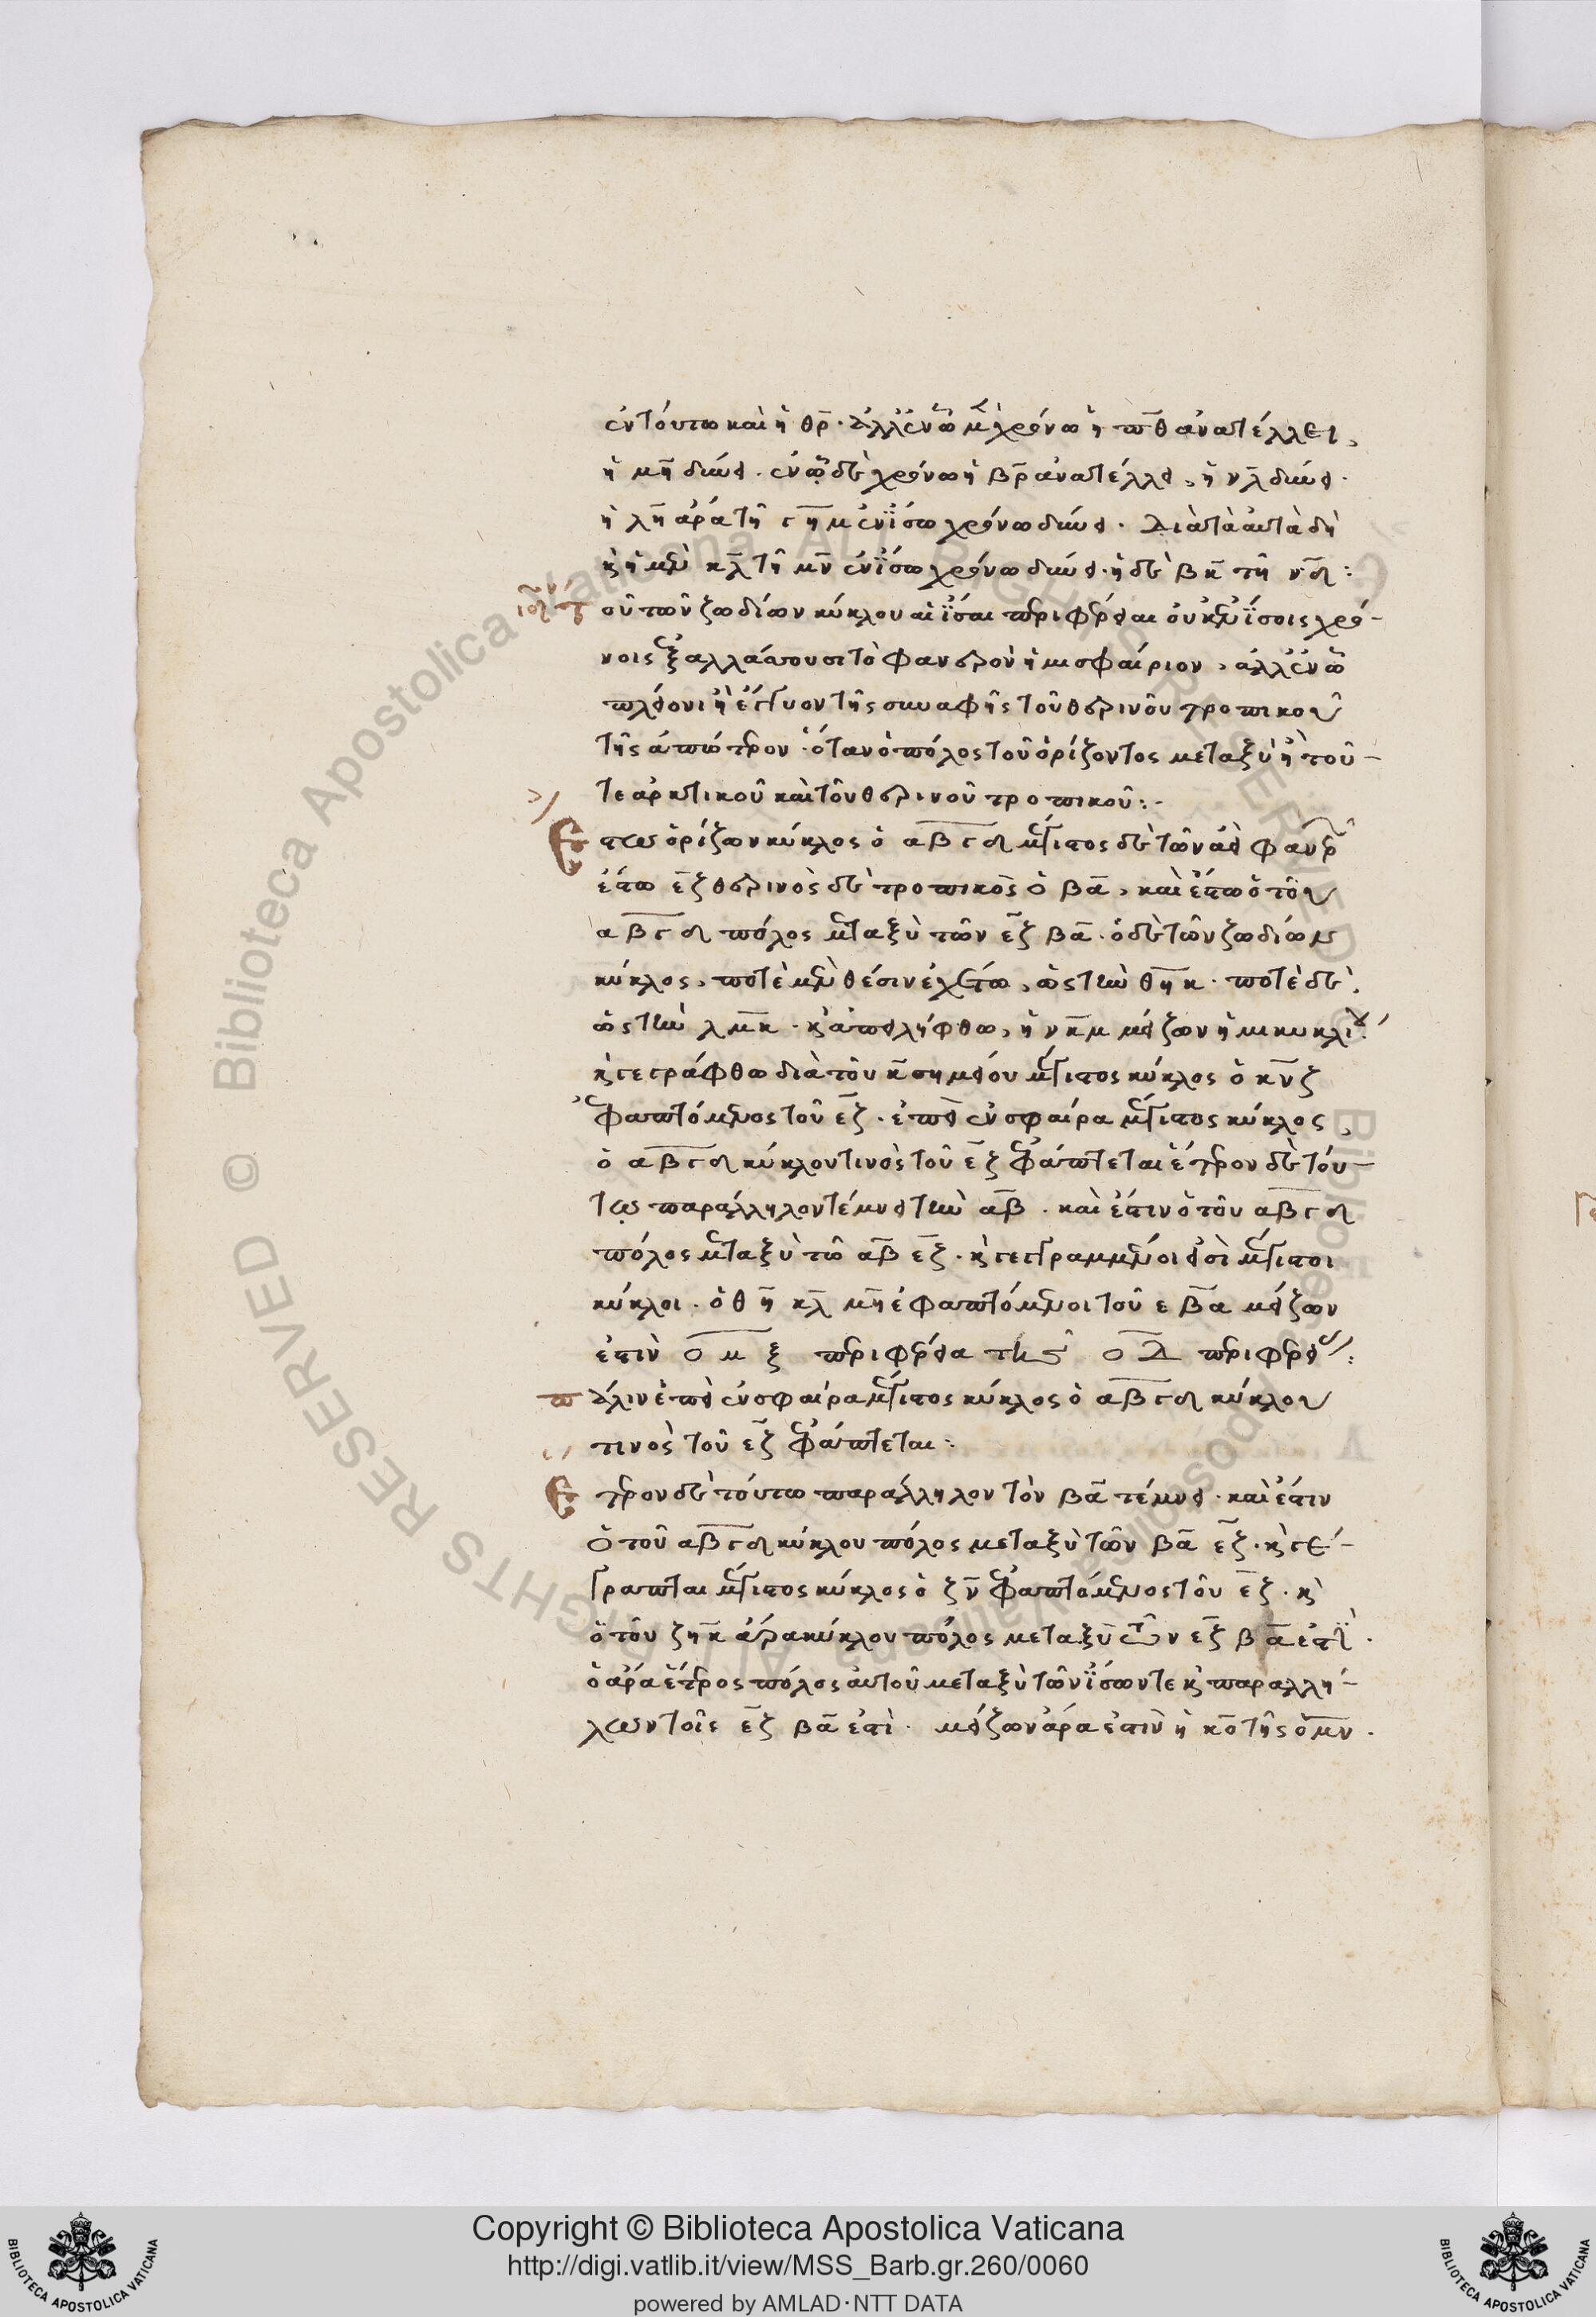 ἐν τούτω καὶ ἡ θρ. ἀλλ' ἐν ὧ μὲν χρόνω ἡ πθ ἀνατέλλει,
ἡ μη δύνει. ἐν ὧ δὲ χρόνω ἡ βρ ἀνατέλλει, ἡ νλ δύνει.
ἡ λη ἄρα τῆ γημ ἐν ἴσω χρόνω δύνει. διὰ τὰ αὐτὰ δὴ
καὶ ἡ μὲν κλ τῆ μν ἐν ἴσω χρόνω δύνει. ἡ δὲ βκ τῆ νδ:
οῦ τῶν ζωδίων κύκλου αἱ ἴσαι περιφέρειαι οὐκ ἐν ἴσοις χρό-
νοις ἐξαλλάσσουσι τὸ φανερὸν ἡμισφαίριον, ἀλλ' ἐν ὧ
πλείονι ἡ ἔγγιον τῆς συναφῆς τοῦ θερινοῦ τροπικοῦ
τῆς ἀπώτερον. ὅταν ὁ πόλος τοῦ ὁρίζοντος μεταξὺ ἦ τοῦ
τε ἀρκτικοῦ καὶ τοῦ θερινοῦ τροπικοῦ:-
Ἔστω ὁρίζων κύκλος ὁ αβγδ μέγιστος δὲ τῶν ἀεὶ φανερῶν
ἔστω εζ θερινὸς δὲ τροπικὸς ὁ βα, καὶ ἔστω ὁ τοῦ
αβγδ πόλος μεταξὺ τῶν εζ βα. ὁ δὲ τῶν ζωδίων
κύκλος, ποτὲ μὲν θέσιν ἐχέτω, ὡς τὴν θηκ. ποτὲ δὲ
ὡς τὴν λμκ. καὶ ἀπειλήφθω, ἡ νκμ μείζων ἡμικυκλίου.
καὶ γεγράφθω διὰ τοῦ κ σημείου μέγιστος κύκλος ὁ κνζ
ἐφαπτόμενος τοῦ εζ. ἐπεὶ ἐν σφαίρα μέγιστος κύκλος,
ὁ αβγδ κύκλου τινὸς τοῦ εζ ἐφάπτεται ἕτερον δὲ τού-
τω παράλληλον τέμνει τὴν αβ. καὶ ἔστιν ὁ τοῦ αβγδ
πόλος μεταξὺ τῶ αβ εζ. καὶ γεγραμμένοι εἰσὶ μέγιστοι
κύκλοι. ὁ θη κλ μη ἐφαπτόμενοι τοῦ ε βα μείζων
ἐστιν ομξ περιφέρεια τῆς ολ περιφερείας:
πάλιν ἐπεὶ ἐν σφαίρα μέγιστος κύκλος ὁ αβγδ κύκλου
τινὸς τοῦ εζ ἐφάπτεται:
Ἕτερον δὲ τούτω παράλληλον τὸν βα τέμνει. καὶ ἔστιν
ὁ τοῦ αβγδ κύκλου πόλος μεταξὺ τῶν βα εζ. καὶ γέ-
γραπται μέγιστος κύκλος ὁ ζν ἐφαπτόμενος τοῦ εζ. καὶ
ὁ τοῦ ζηκ ἄρα κύκλου πόλος μεταξὺ τῶν εζ βα ἐστὶ.
ὁ ἄρα ἕτερος πόλος αὐτοῦ μεταξὺ τῶν ἴσων τε καὶ παραλλή-
λων τοῖς εζ βα ἐστὶ. μείζων ἄρα ἐστὶν ἡ κο τῆς ομν.
Copyright © Biblioteca Apostolica Vaticana
http://digi.vatlib.it/view/MSS_Barb.gr.260/0060
powered by AMLAD·NTT DATA